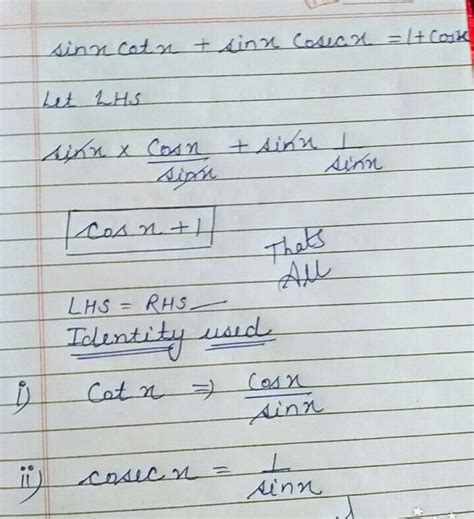 sinx cotx + sinx cosecx = 1 + cosx
Let LHS
sinx × cosx/sinx + sinx 1/sinx
cos x + 1
Thats
All
LHS = RHS
Identity used
i) Cot x ⇒ cosx/sinx
ii) cosec x = 1/sinx